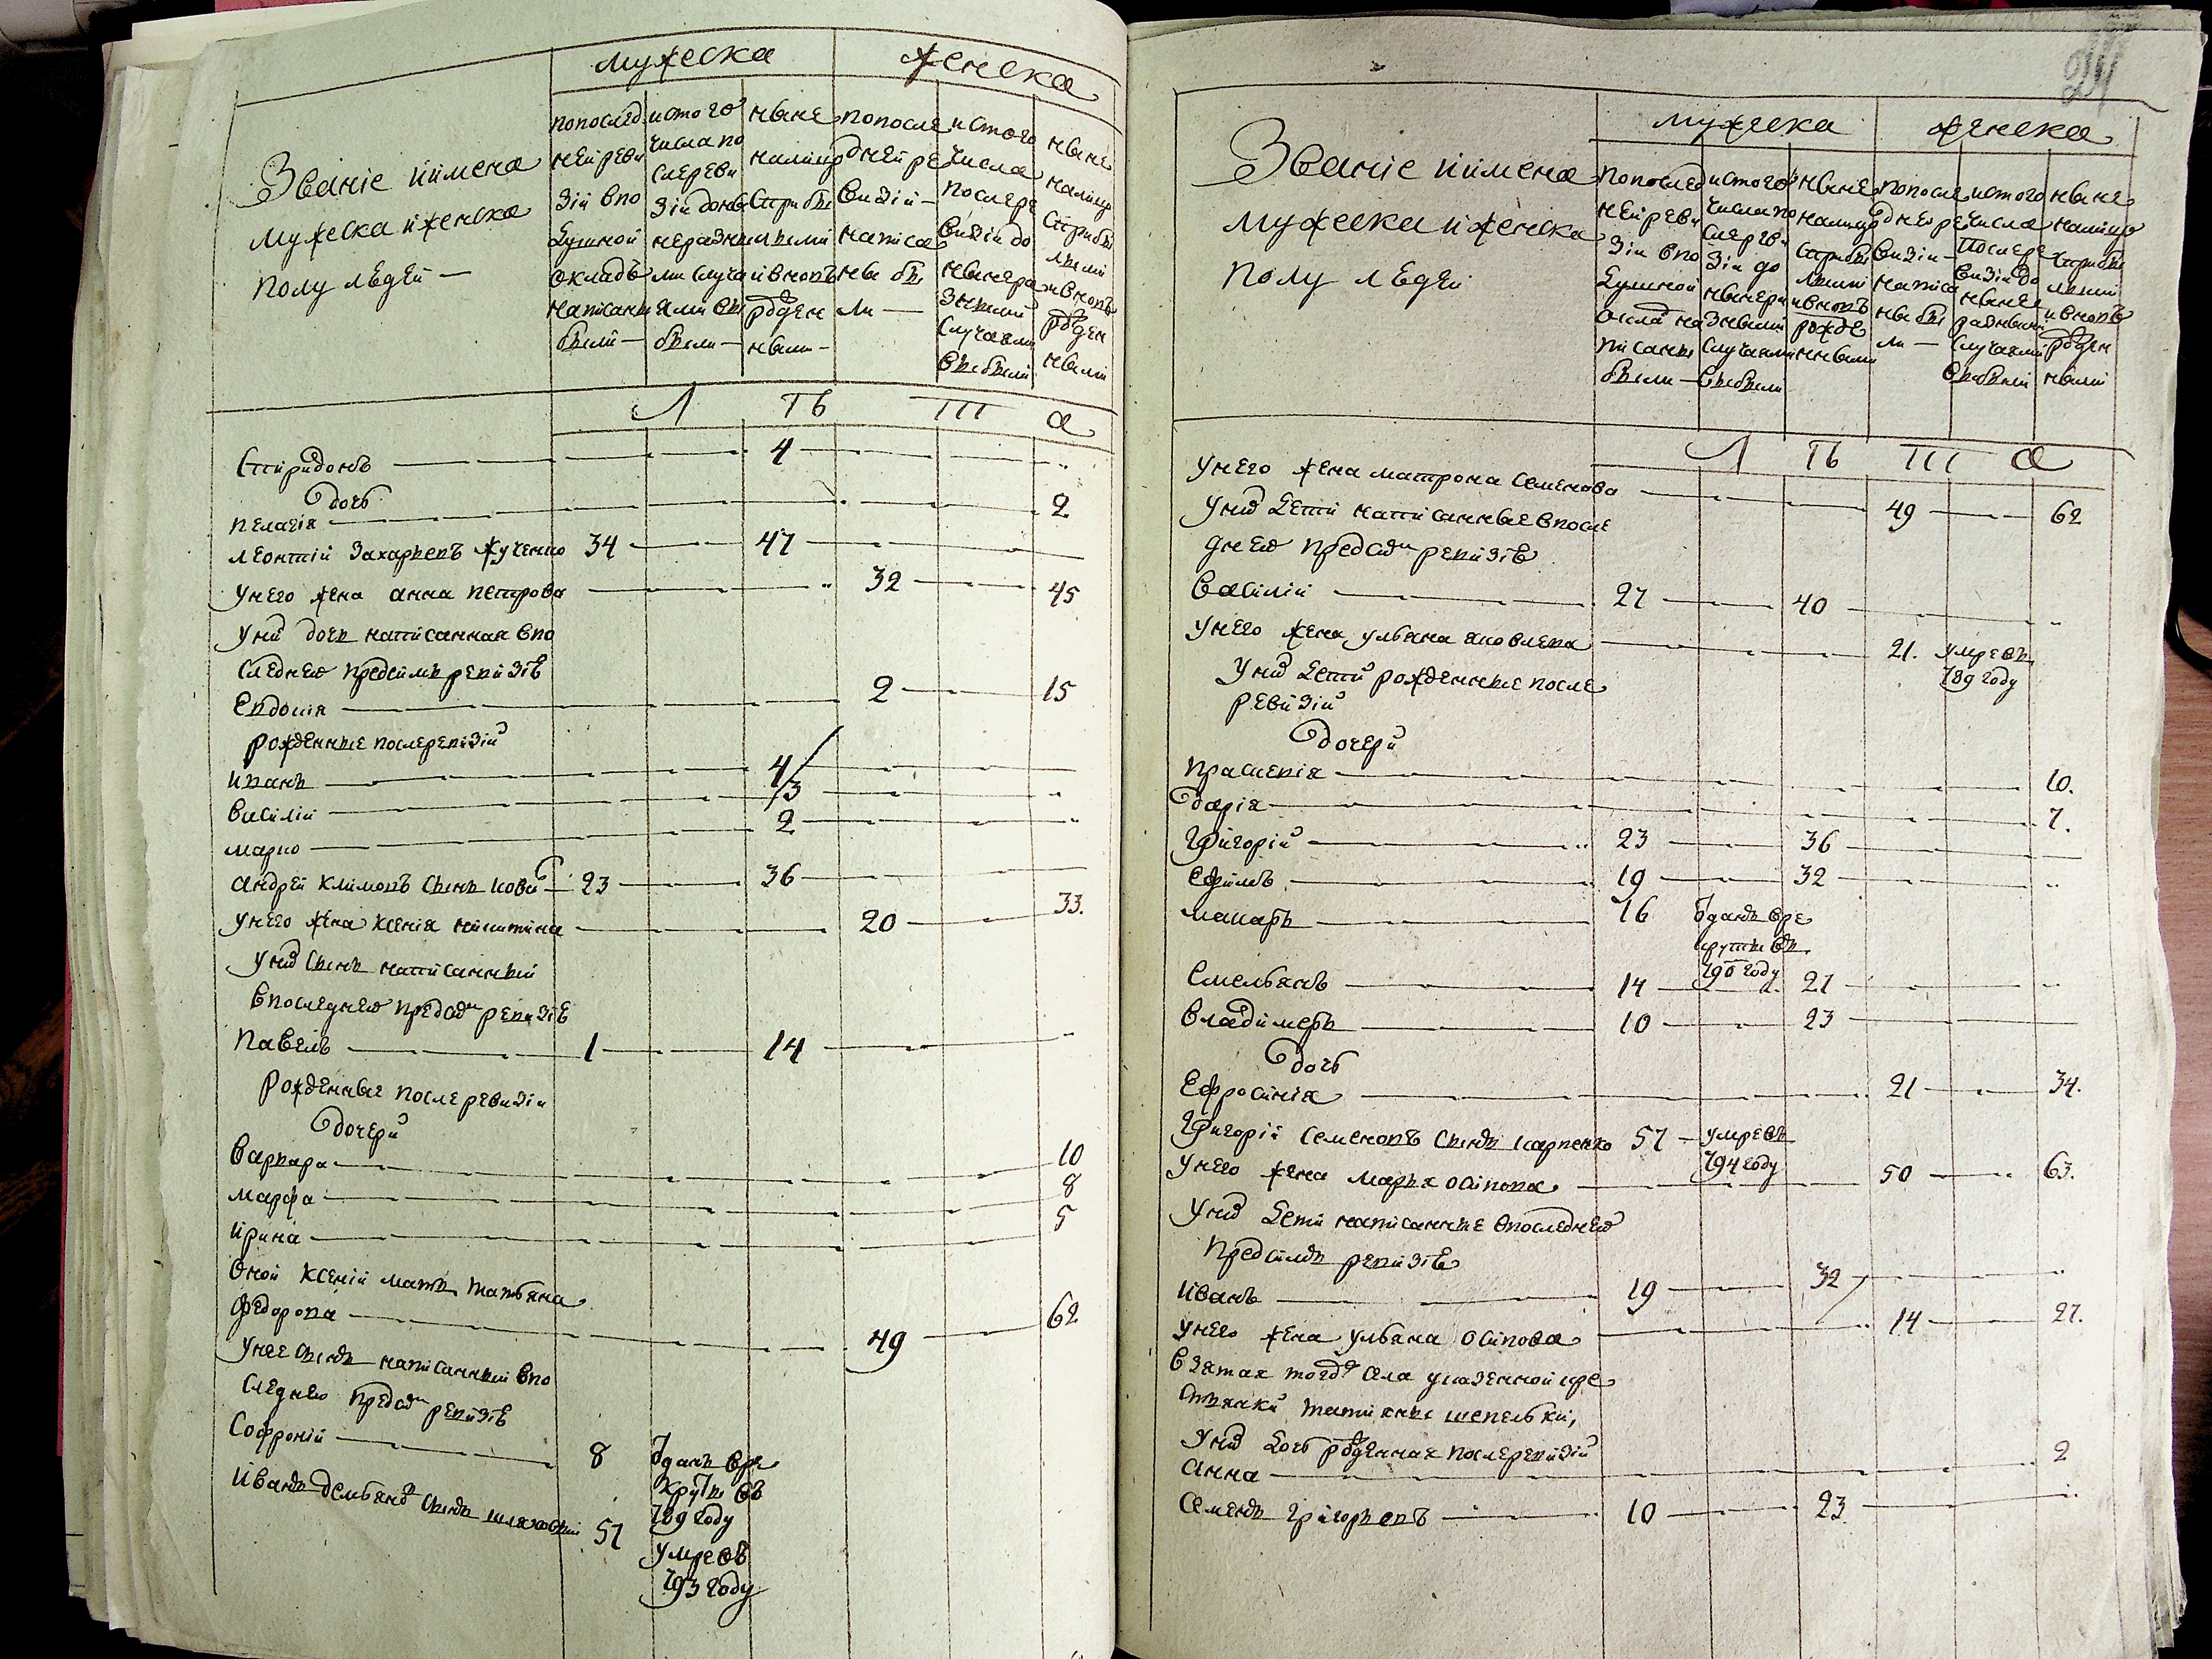 мужеска
женска
Званіе иимена
мужеска иженска
полу людей —
попослед
ней реви
зіи впо
душной
окладъ
написаны
были —
истого
числа по
слереви
зіи доны
неразны
ми случа
ями вы
были —
ныне
налицо
сприбы
лыми
ивновь
рожден
ными —
попосле
дней ре
визіи —
написа
ны бы
ли —
истого
числа
послере
визіи до
ныне ра
зными
случаями
выбыли
ныне
налицо
сприбы
лыми
ивновь
рожден
ными
Л Ть ТТТ а
Спиридонъ — 4 — "
дочь
пелагія — 2
леонтій Захарьевъ жученко 34 — 47 —
унего жена анна петрова — " 32 — 45
унихъ дочь написанная впо
следней предсимъ ревизіе
Евдокія — 2 — 15
рожденные послеревизіи
иванъ — 4 —
василій — 3 — "
марко — 2 — "
андрей климовъ сынъ кови 23 — 36 —
унего жена ксенія никитина — 20 — 33.
унихъ сынъ написанный
впоследней предсимъ ревизіе
павелъ — 1 — 14 — "
рожденные послеревизіи
дочери
варвара — 10
марфа — 8
ирина — 5
оной ксеніи мать татьяна
федорова — 49 — 62
унее сынъ написанный впо
следней предсимъ ревизіе
Софроній — 8 отданъ вре
круты въ
789 году
иванъ демьяновъ сынъ шляховый 57 умре въ
793 году
мужеска
женска
Званіе иимена
мужеска иженска
полу людей
попослед
ней реви
зіи впо
душной
оклад на
писаны
были —
истого
числапо
слереви
зіи до
ныне ра
зными
случаями
выбыли
ныне
налицо
сприбы
лыми
ивновь
рожде
нными
попосле
дней ре
визіи —
написа
ны бы
ли —
истого
числа
послере
визіи до
ныне
разными
случаями
выбыли
ныне
налицо
сприбы
лыми
ивновь
рожден
ными
Л Ть ТТТ а
унего жена матрона семенова — 49 — 62
унихъ дети написанные впосле
дней предсимъ ревизіе
василій — 27 — 40 — "
унего жена ульяна яковлева — 21. умре въ
789 году
унихъ дети рожденные после
ревизіи
дочери
прасковія — 10.
дарія — 7.
григорій — 23 — 36 —
ефимъ — 19 — 32 — "
макаръ — 16 отданъ вре
круты въ
790 году
емельянъ — 14 — 27 — "
владимеръ — 10 — 23 —
дочь
Ефросинія — 21 — 34.
григорій семеновъ сынъ карпенко 57 — умре въ
794 году
унего жена марья осипова — 50 — 63.
унихъ дети написанные впоследней
предсимъ ревизіе
иванъ — 19 — 32 — "
унего жена ульяна осипова — 14 — 27.
взятая тогожъ села указенной кре
стьянки татияны шепельки,
унихъ дочь рожденная послеревизіи
анна — 2
семенъ григорьевъ — 10 — 23 — "